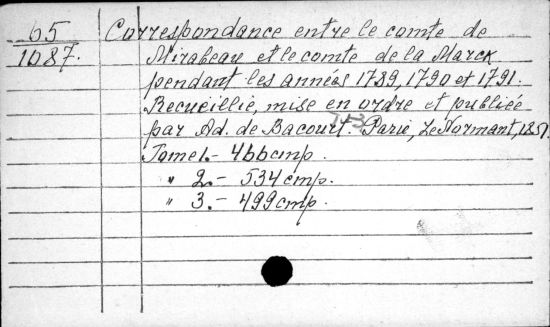 65
1087.
Correspondance entre le comte de
Mirabeau et le comte de la Marck
pendant les années 1789, 1790 et 1791.
Recueillie, mise en ordre et publiée
par Ad. de Bacourt. Paris, Le Normant, 1851.
Tome 1. – 466 cmp.
" 2. – 534 cmp.
" 3. – 499 cmp.